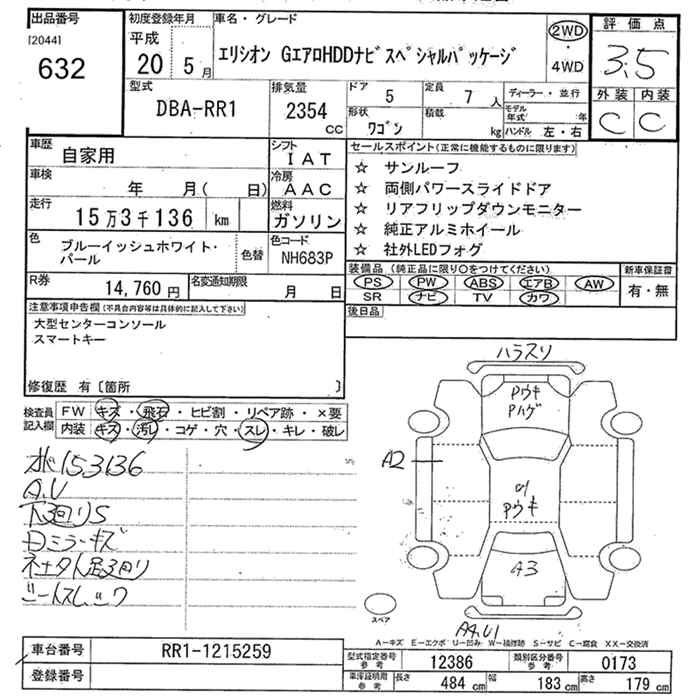 出品番号
[2044]
632
初度登録年月
平成
20 5月
車名・グレード
エリシオン GエアロHDDナビスペシャルパッケージ
2WD
・
4WD
評価点
3.5
外装 内装
C C
型式
DBA-RR1
排気量
2354
CC
ドア
5
定員
7 人
形状
ワゴン
積載
kg
ディーラー・並行
モデル年式 年
ハンドル 左・右
車歴
自家用
シフト
IAT
車検
年 月( 日)
冷房
AAC
走行
15万3千136 km
燃料
ガソリン
色
ブルーイッシュホワイト・パール
色替
色コード
NH683P
R券
14,760円
名変通知期限
月 日
セールスポイント(正常に機能するものに限ります)
☆ サンルーフ
☆ 両側パワースライドドア
☆ リアフリップダウンモニター
☆ 純正アルミホイール
☆ 社外LEDフォグ
装備品(純正品に限り○をつけてください)
PS PW ABS エアB AW
SR ナビ TV カワ
新車保証書
有・無
後日品
注意事項申告欄(不具合内容等は具体的に記入して下さい)
大型センターコンソール
スマートキー
修復歴 有〔箇所 〕
検査員記入欄
FW キズ・飛石・ヒビ割・リペア跡・×要
内装 キズ・汚レ・コゲ・穴・スレ・キレ・破レ
153136
A.U
下回りS
ハラスリ
Pウキ
Pハゲ
A2
Pウキ
A3
A4.U1
スペア
A-キズ E-エクボ U-凹み W-補修跡 S-サビ C-腐食 XX-交換済
車台番号
RR1-1215259
登録番号
型式指定番号
参考
12386
類別区分番号
参考
0173
車庫証明用
参考
長さ
484 cm
幅
183 cm
高さ
179 cm